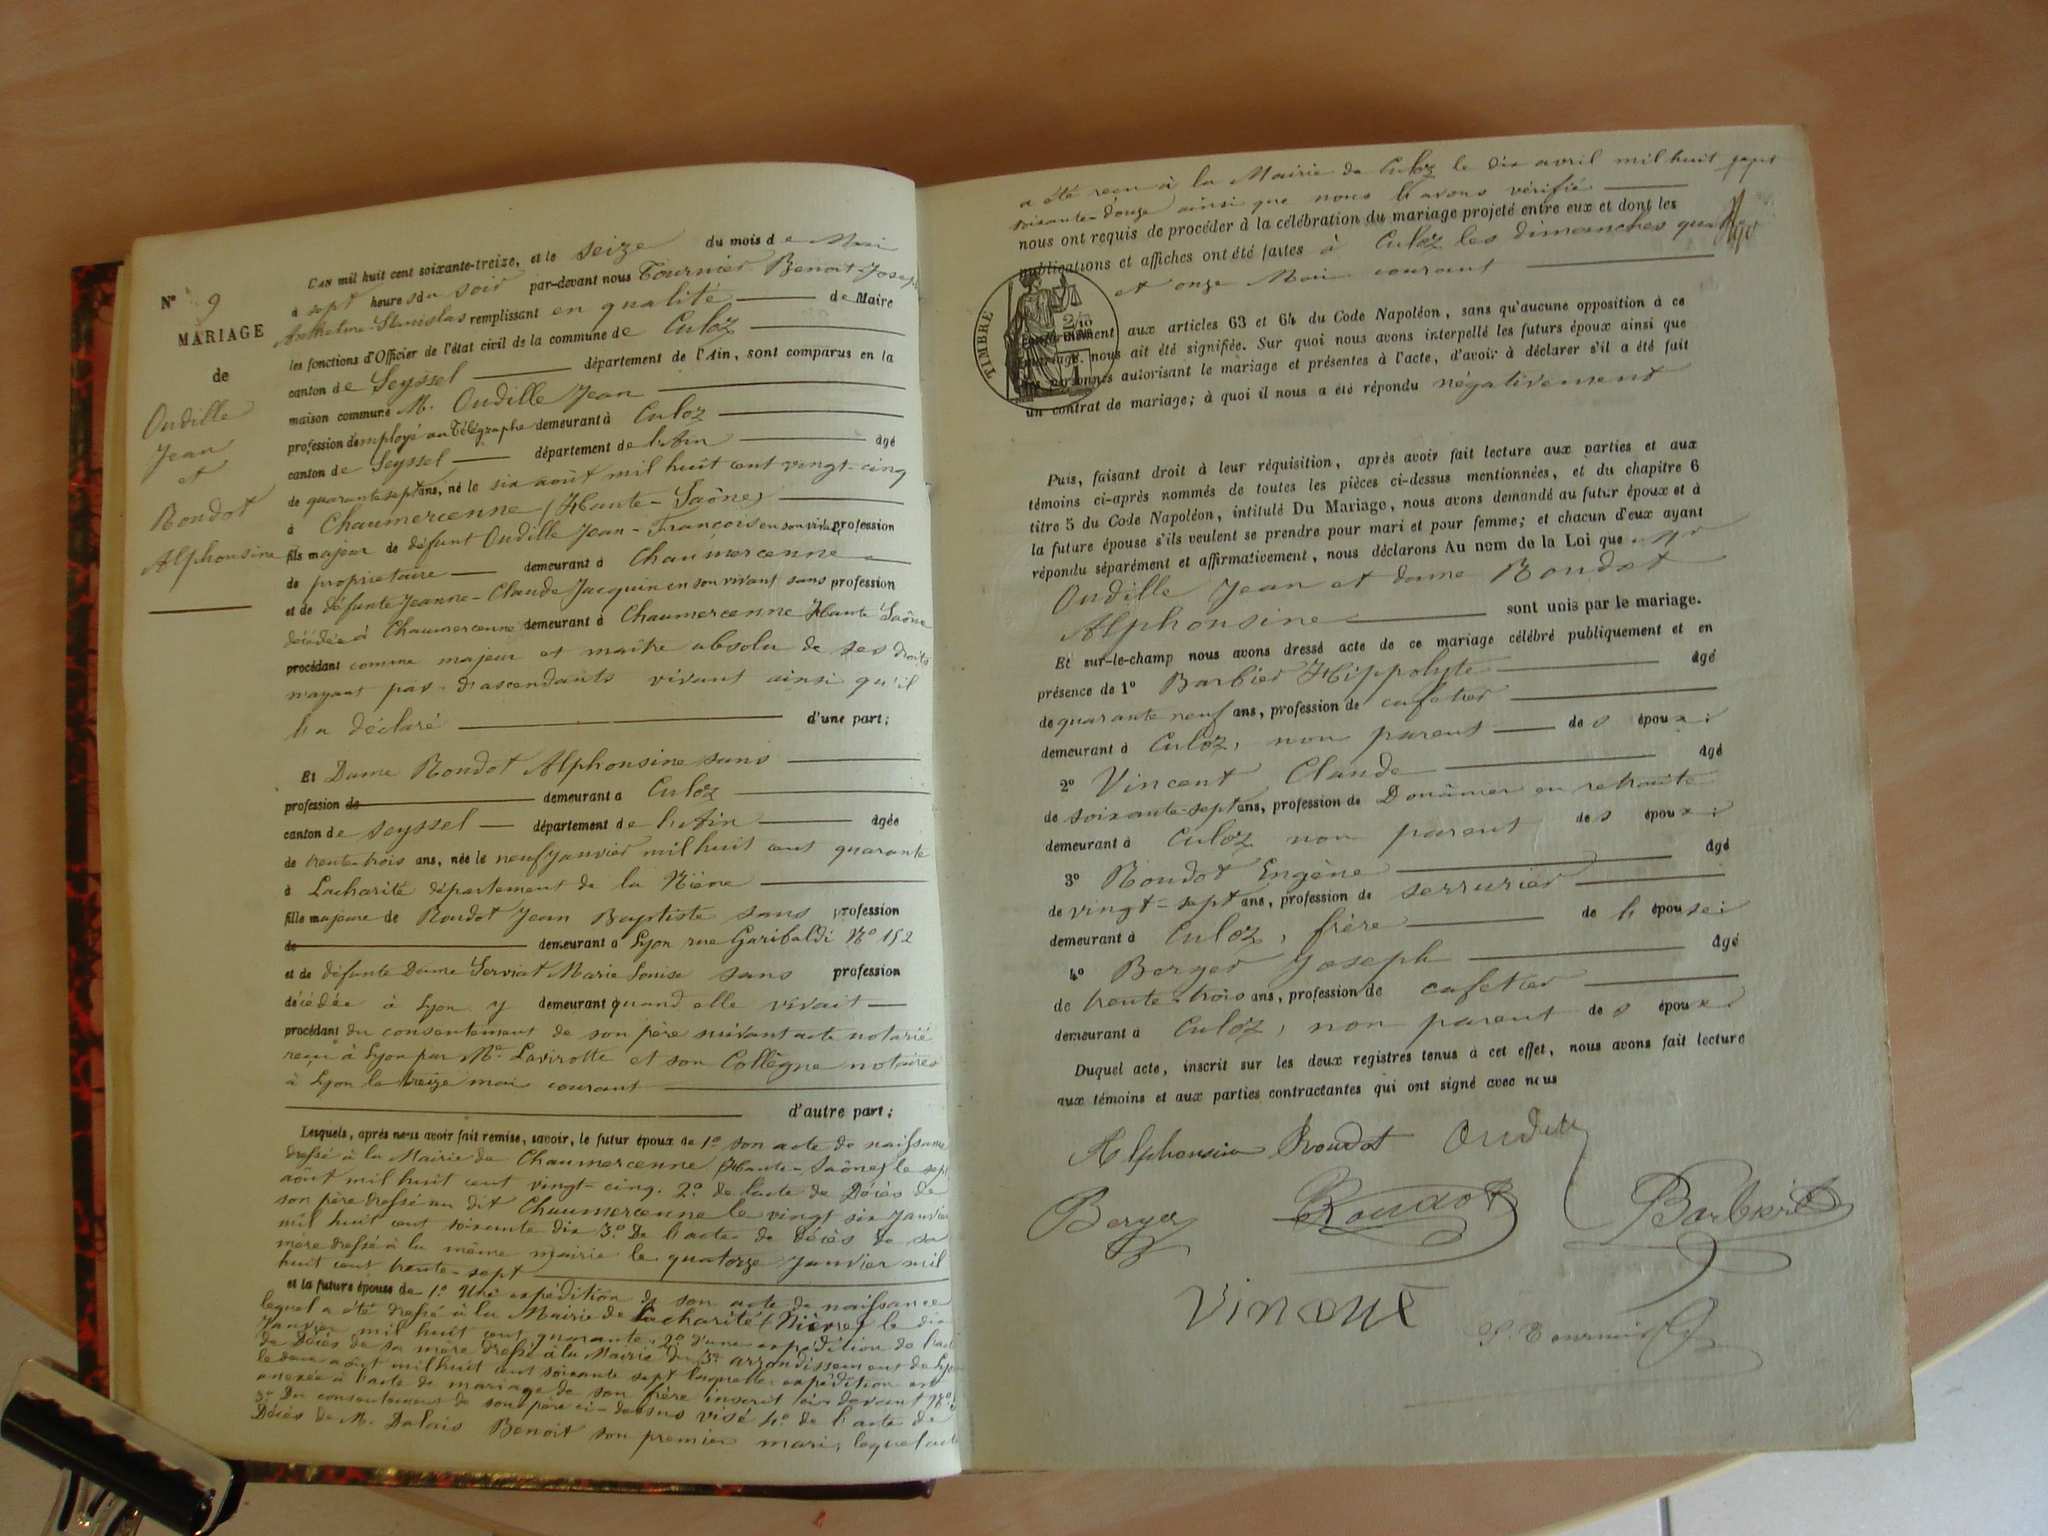 N° 9
MARIAGE
de
Oudille
Jean
et
Roudot
Alphonsine
L'AN mil huit cent soixante-treize, et le seize du mois de Mai
à sept heures du soir par-devant nous Tournier Benoit-Joseph
Anthelme-Stanislas remplissant en qualité de Maire
les fonctions d'Officier de l'état civil de la commune de Culoz
canton de Seyssel département de l'Ain, sont comparus en la
maison commune M. Oudille Jean
profession d'employé au Télégraphe demeurant à Culoz
canton de Seyssel département de l'Ain âgé
de quarante sept ans, né le six août mil huit cent vingt-cinq
à Chaumercenne (Haute-Saône)
fils majeur de défunt Oudille Jean-François en son vivant profession
de propriétaire demeurant à Chaumercenne
et de défunte Jeanne-Claude Jacquin en son vivant sans profession
décédée à Chaumercenne demeurant à Chaumercenne Haute Saône
procédant comme majeur et maître absolu de ses droits
n'ayant pas d'ascendants vivant ainsi qu'il
l'a déclaré d'une part;
Et Dame Roudot Alphonsine sans
profession de demeurant à Culoz
canton de Seyssel département de l'Ain âgée
de trente-trois ans, née le neuf janvier mil huit cent quarante
à Lacharité département de la Nièvre
fille majeure de Roudot Jean Baptiste sans profession
de demeurant à Lyon rue Garibaldi N° 152
et de défunte Dame Serviat Marie Louise sans profession
décédée à Lyon y demeurant quand elle vivait
procédant du consentement de son père suivant acte notarié
reçu à Lyon par Me Lavirotte et son Collègue notaires
à Lyon le treize mai courant
d'autre part;
Lesquels, après nous avoir fait remise, savoir, le futur époux de 1° son acte de naissance
dressé à la Mairie de Chaumercenne (Haute-Saône) le sept
août mil huit cent vingt-cinq. 2° de l'acte de Décès de
son père dressé au dit Chaumercenne le vingt six Janvier
mil huit cent soixante dix 3° De l'acte de décès de sa
mère dressé à la même mairie le quatorze Janvier mil
huit cent trente-sept
et la future épouse de 1° Une expédition de son acte de naissance
lequel a été dressé à la Mairie de Lacharité (Nièvre) le dix
Janvier mil huit cent quarante. 2° d'une expédition de l'acte
de Décès de sa mère dressé à la Mairie du 3e arrondissement de Lyon
le deux août mil huit cent soixante sept laquelle expédition est
annexée à l'acte de mariage de son frère inscrit ci-devant N°
3° Du consentement de son père ci-dessus visé 4° de l'acte de
Décès de M. Dalais Benoit son premier mari, lequel acte
a été reçu à la Mairie de Culoz le dix avril mil huit cent
soixante-douze ainsi que nous l'avons vérifié
nous ont requis de procéder à la célébration du mariage projeté entre eux et dont les
publications et affiches ont été faites à Culoz les dimanches quatre
et onze Mai courant
TIMBRE
2/10
conformément aux articles 63 et 64 du Code Napoléon, sans qu'aucune opposition à ce
mariage nous ait été signifiée. Sur quoi nous avons interpellé les futurs époux ainsi que
les personnes autorisant le mariage et présentes à l'acte, d'avoir à déclarer s'il a été fait
un contrat de mariage; à quoi il nous a été répondu négativement
Puis, faisant droit à leur réquisition, après avoir fait lecture aux parties et aux
témoins ci-après nommés de toutes les pièces ci-dessus mentionnées, et du chapitre 6
titre 5 du Code Napoléon, intitulé Du Mariage, nous avons demandé au futur époux et à
la future épouse s'ils veulent se prendre pour mari et pour femme; et chacun d'eux ayant
répondu séparément et affirmativement, nous déclarons Au nom de la Loi que Mr
Oudille Jean et dame Roudot
Alphonsine sont unis par le mariage.
Et sur-le-champ nous avons dressé acte de ce mariage célébré publiquement et en
présence de 1° Barbier Hippolyte âgé
de quarante neuf ans, profession de cafetier
demeurant à Culoz, non parent des époux;
2° Vincent Claude âgé
de soixante-sept ans, profession de Douanier en retraite
demeurant à Culoz non parent des époux;
3° Roudot Eugène âgé
de vingt-sept ans, profession de serrurier
demeurant à Culoz, frère de l'épouse;
4° Berger Joseph âgé
de trente-trois ans, profession de cafetier
demeurant à Culoz, non parent des époux;
Duquel acte, inscrit sur les deux registres tenus à cet effet, nous avons fait lecture
aux témoins et aux parties contractantes qui ont signé avec nous
Alphonsine Roudot Oudille
Berger Roudot Barbier
Vincent S. Tournier